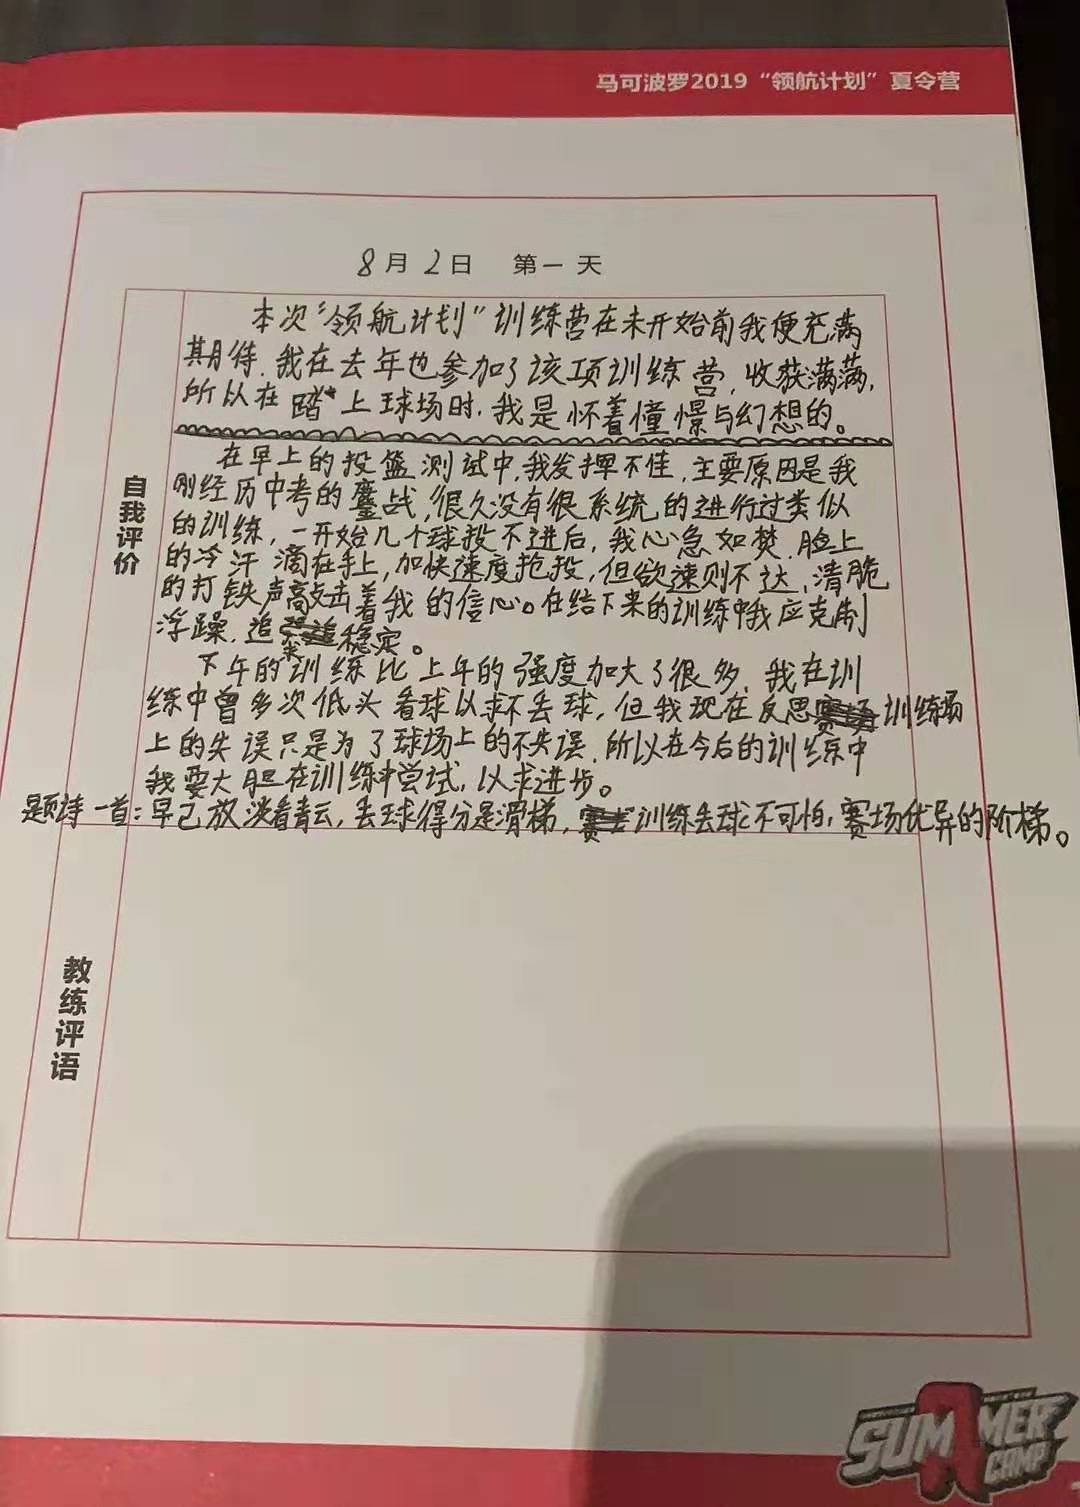 马可波罗2019“领航计划”夏令营
8月2日 第一天
自我评价
本次“领航计划”训练营在未开始前我便充满
期待,我在去年也参加了该项训练营,收获满满,
所以在踏上球场时,我是怀着憧憬与幻想的。
在早上的投篮测试中,我发挥不佳,主要原因是我
刚经历中考的鏖战,很久没有很系统的进行过类似
的训练,一开始几个球投不进后,我心急如焚,脸上
的冷汗滴在手上,加快速度抢投,但欲速则不达,清脆
的打铁声敲击着我的信心。在结下来的训练中我应克制
浮躁,追求稳定。
下午的训练比上午的强度加大了很多,我在训
练中曾多次低头看球以求不丢球,但我现在反思训练场
上的失误只是为了球场上的不失误,所以在今后的训练中
我要大胆在训练中尝试,以求进步。
题诗一首:早已放淡看青云,丢球得分是滑梯,训练丢球不可怕,赛场优异的阶梯。
教练评语
SUMMER
CAMP